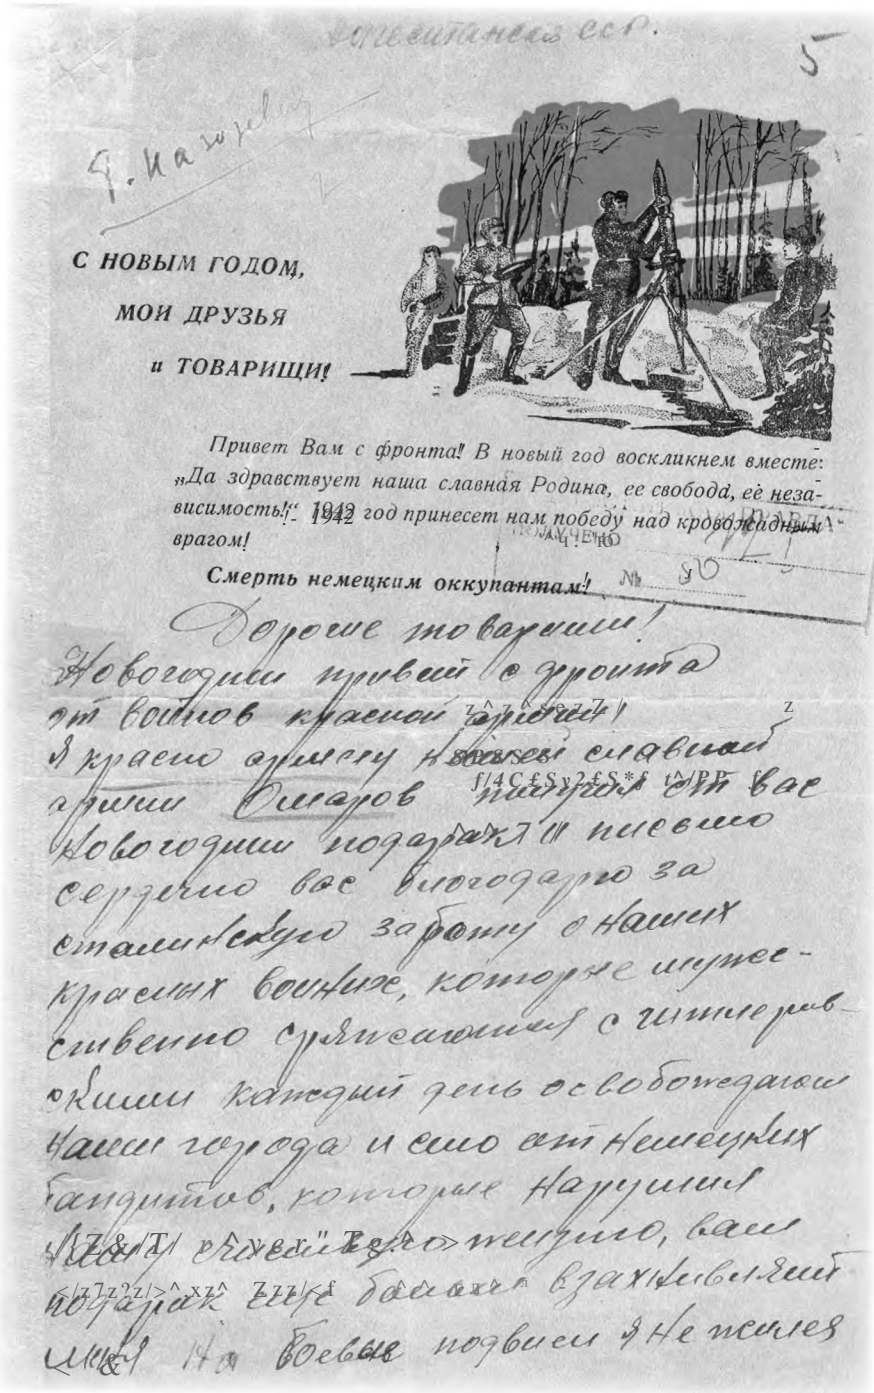 Дагестанская ССР.
5
С НОВЫМ ГОДОМ,
МОИ ДРУЗЬЯ
и ТОВАРИЩИ!
Привет Вам с фронта! В новый год воскликнем вместе:
„Да здравствует наша славная Родина, ее свобода, её неза-
висимость!“ 1942 год принесет нам победу над кровожадным
врагом!
ПОЛУЧЕНО
Смерть немецким оккупантам!
№ 80
Дорогие товарищи!
Новогодний привет с фронта
от воинов красной армии!
Я красно армеец нашей славной
армии Омаров получил от вас
Новогодний подарак и письмо
сердечно вас благодарю за
сталинскую заботу о наших
красных воинах, которые мужес-
ственно сряжаются с гитлеров-
скими каждый день освобождаем
наши города и село от немецких
бандитов, которые нарушил
нашу счастливую жизню, ваш
подарак еще больше взахнивляит
миня на боевые подвиги я не жилея